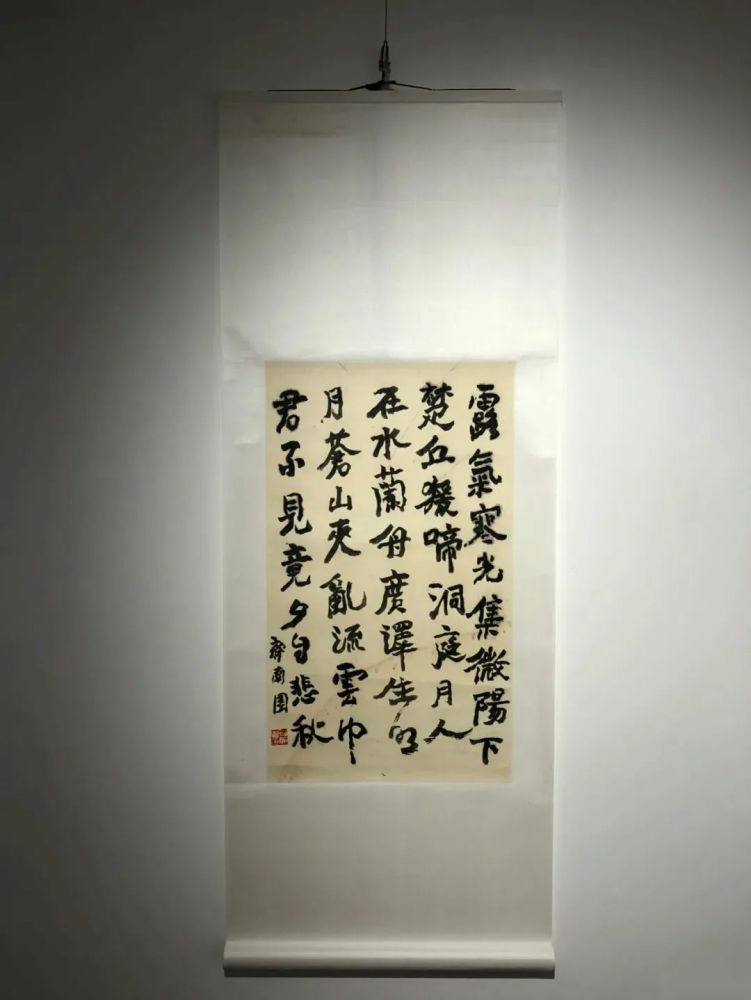 露氣寒光集微陽下
楚丘猨啼洞庭月人
在水蘭舟廣澤生明
月蒼山夾亂流雲中
君不見竟夕自悲秋